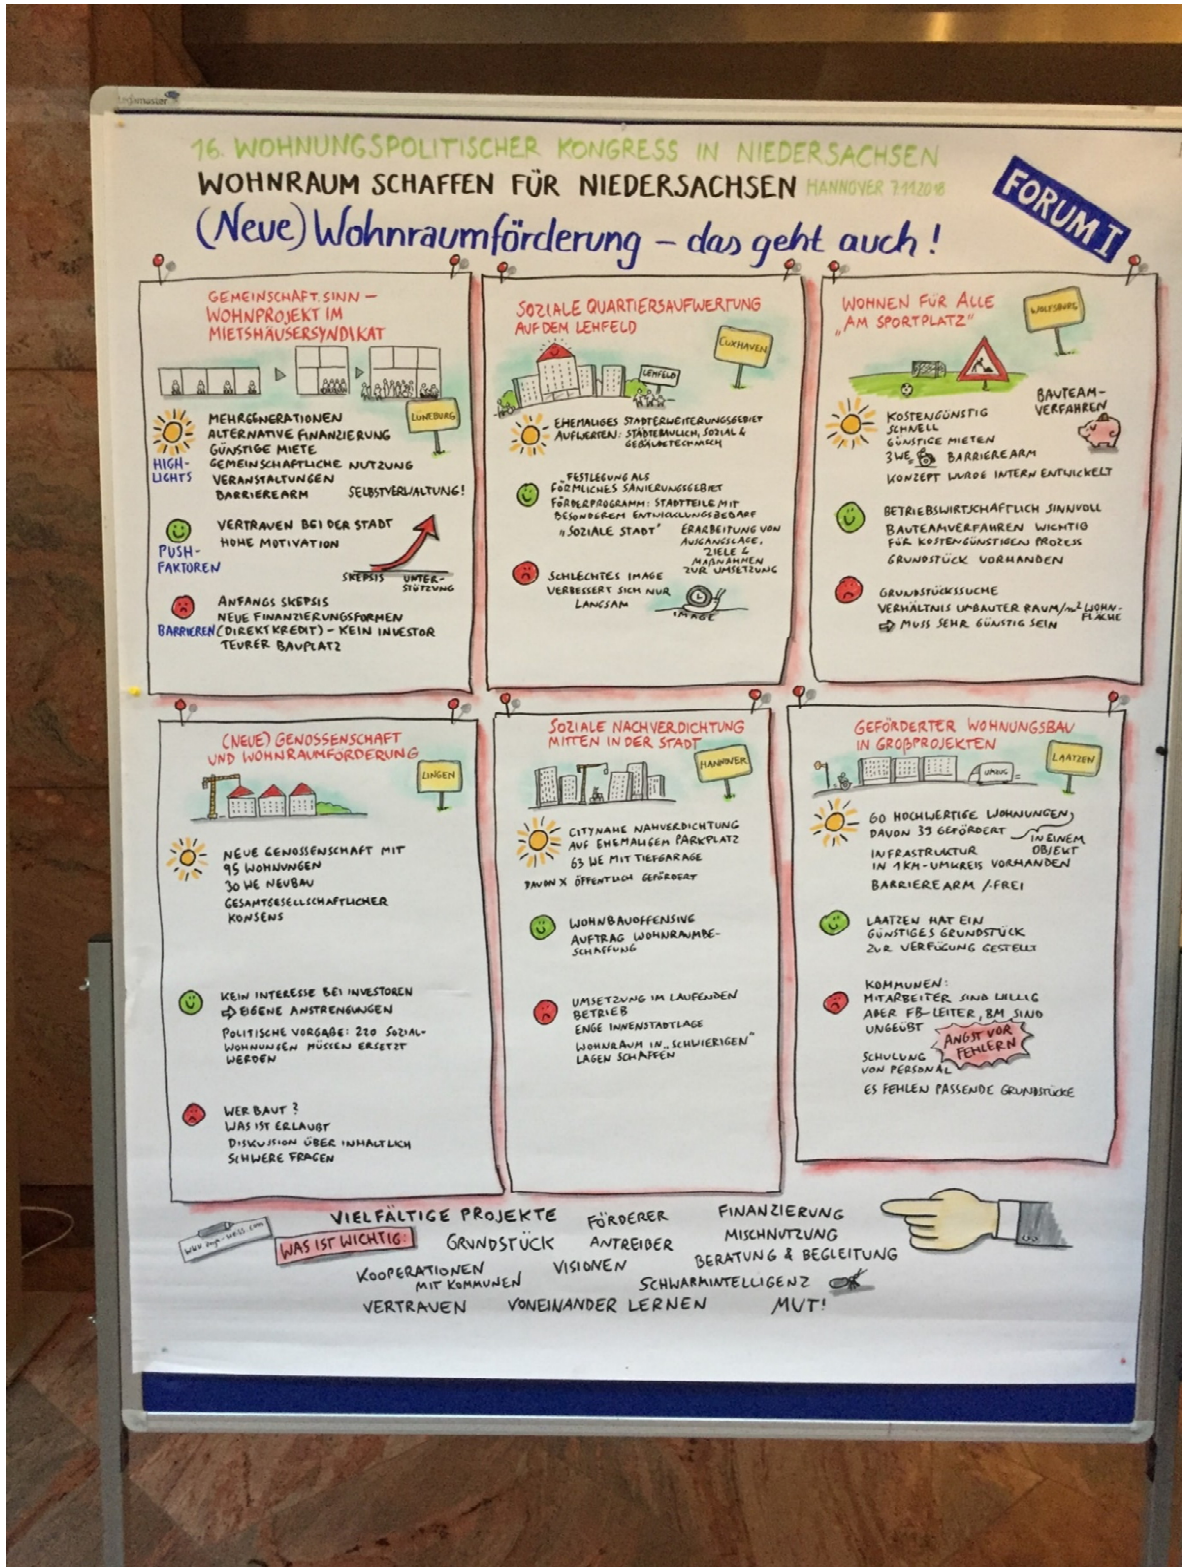 legamaster
16. WOHNUNGSPOLITISCHER KONGRESS IN NIEDERSACHSEN
WOHNRAUM SCHAFFEN FÜR NIEDERSACHSEN HANNOVER 7.11.2018
(Neue) Wohnraumförderung – das geht auch!
FORUM I
GEMEINSCHAFT.SINN –
WOHNPROJEKT IM
MIETSHÄUSERSYNDIKAT
LÜNEBURG
HIGH-
LIGHTS
MEHRGENERATIONEN
ALTERNATIVE FINANZIERUNG
GÜNSTIGE MIETE
GEMEINSCHAFTLICHE NUTZUNG
VERANSTALTUNGEN
BARRIEREARM SELBSTVERWALTUNG!
PUSH-
FAKTOREN
VERTRAUEN BEI DER STADT
HOHE MOTIVATION
SKEPSIS UNTER-
STÜTZUNG
BARRIEREN
ANFANGS SKEPSIS
NEUE FINANZIERUNGSFORMEN
(DIREKTKREDIT) – KEIN INVESTOR
TEURER BAUPLATZ
SOZIALE QUARTIERSAUFWERTUNG
AUF DEM LEHFELD
CUXHAVEN
LEHFELD
EHEMALIGES STADTERWEITERUNGSGEBIET
AUFWERTEN: STÄDTEBAULICH, SOZIAL &
GEBÄUDETECHNISCH
FESTLEGUNG ALS
FÖRMLICHES SANIERUNGSGEBIET
FÖRDERPROGRAMM: STADTTEILE MIT
BESONDEREM ENTWICKLUNGSBEDARF
„SOZIALE STADT"
ERARBEITUNG VON
AUSGANGSLAGE,
ZIELE &
MAßNAHMEN
ZUR UMSETZUNG
SCHLECHTES IMAGE
VERBESSERT SICH NUR
LANGSAM
IMAGE
WOHNEN FÜR ALLE
„AM SPORTPLATZ"
WOLFSBURG
BAUTEAM-
VERFAHREN
KOSTENGÜNSTIG
SCHNELL
GÜNSTIGE MIETEN
3 WE BARRIEREARM
KONZEPT WURDE INTERN ENTWICKELT
BETRIEBSWIRTSCHAFTLICH SINNVOLL
BAUTEAMVERFAHREN WICHTIG
FÜR KOSTENGÜNSTIGEN PROZESS
GRUNDSTÜCK VORHANDEN
GRUNDSTÜCKSSUCHE
VERHÄLTNIS UMBAUTER RAUM/m² WOHN-
FLÄCHE
⇨ MUSS SEHR GÜNSTIG SEIN
(NEUE) GENOSSENSCHAFT
UND WOHNRAUMFÖRDERUNG
LINGEN
NEUE GENOSSENSCHAFT MIT
95 WOHNUNGEN
30 WE NEUBAU
GESAMTGESELLSCHAFTLICHER
KONSENS
KEIN INTERESSE BEI INVESTOREN
⇨ EIGENE ANSTRENGUNGEN
POLITISCHE VORGABE: 220 SOZIAL-
WOHNUNGEN MÜSSEN ERSETZT
WERDEN
WER BAUT?
WAS IST ERLAUBT
DISKUSSION ÜBER INHALTLICH
SCHWERE FRAGEN
SOZIALE NACHVERDICHTUNG
MITTEN IN DER STADT
HANNOVER
CITYNAHE NAHVERDICHTUNG
AUF EHEMALIGEM PARKPLATZ
63 WE MIT TIEFGARAGE
DAVON X ÖFFENTLICH GEFÖRDERT
WOHNBAUOFFENSIVE
AUFTRAG WOHNRAUMBE-
SCHAFFUNG
UMSETZUNG IM LAUFENDEN
BETRIEB
ENGE INNENSTADTLAGE
WOHNRAUM IN „SCHWIERIGEN"
LAGEN SCHAFFEN
GEFÖRDERTER WOHNUNGSBAU
IN GROßPROJEKTEN
LAATZEN
UMZUG
60 HOCHWERTIGE WOHNUNGEN,
DAVON 39 GEFÖRDERT
IN EINEM
OBJEKT
INFRASTRUKTUR
IN 1 KM-UMKREIS VORHANDEN
BARRIEREARM /-FREI
LAATZEN HAT EIN
GÜNSTIGES GRUNDSTÜCK
ZUR VERFÜGUNG GESTELLT
KOMMUNEN:
MITARBEITER SIND WILLIG
ABER FB-LEITER, BM SIND
UNGEÜBT
ANGST VOR
FEHLERN
SCHULUNG
VON PERSONAL
ES FEHLEN PASSENDE GRUNDSTÜCKE
WAS IST WICHTIG:
VIELFÄLTIGE PROJEKTE FÖRDERER FINANZIERUNG
GRUNDSTÜCK ANTREIBER MISCHNUTZUNG
KOOPERATIONEN
MIT KOMMUNEN
VISIONEN BERATUNG & BEGLEITUNG
SCHWARMINTELLIGENZ
VERTRAUEN VONEINANDER LERNEN MUT!